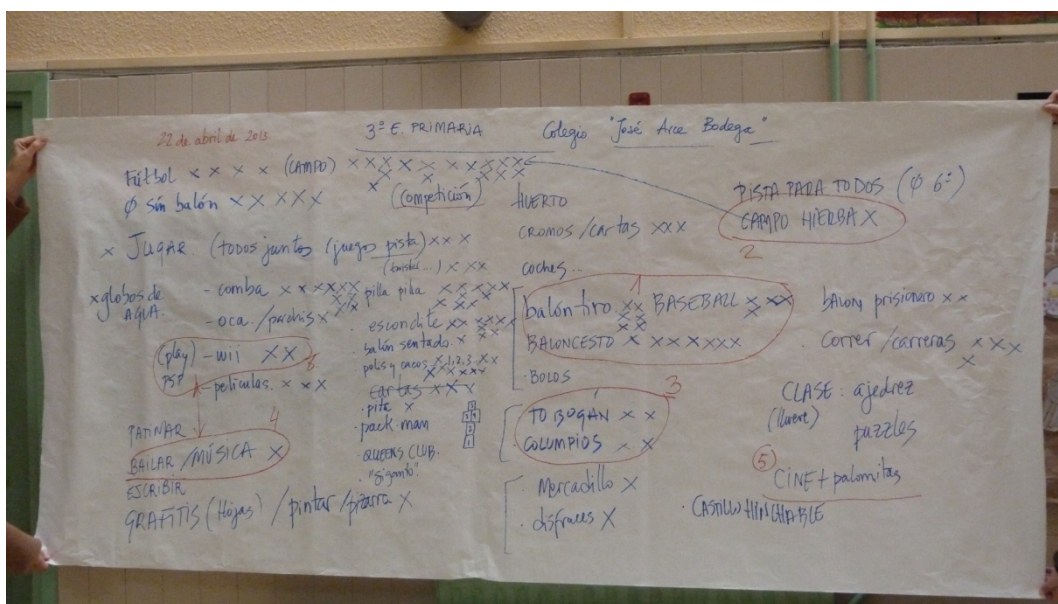 22 de abril de 2013
3º E. PRIMARIA
Colegio "José Arce Bodega"
Fútbol x x x x (CAMPO) x x x x x x x x x x
Ø sin balón x x x x x
(Competición)
x JUGAR (todos juntos / juegos pista) x x x
(twister...) x x x
x globos de
AGUA.
- comba x x x x x x
- oca / parchís x
(play) - wii x x
PSP
- películas. x x x
PATINAR
4
BAILAR / MÚSICA x
ESCRIBIR
GRAFITIS (Hojas) / pintar / pizarra x
pilla pilla x x x x x
. escondite x x x x x x
. balón sentado x
polis y cacos x, 1, 2, 3 x x
cartas x x x
. pita x
. pack-man
. QUEENS CLUB.
HUERTO
CROMOS / cartas x x x
coches...
1
balón-tiro x x BASEBALL x x x
BALONCESTO x x x x x x x
. BOLOS
3
TOBOGÁN x x
COLUMPIOS x x
. Mercadillo x
. disfraces x
PISTA PARA TODOS (Ø 6º)
CAMPO HIERBA x
2
balón prisionero x x
. correr / carreras x x x
x
CLASE: ajedrez
(llueve)
puzzles
5
CINE + palomitas
. CASTILLO HINCHABLE